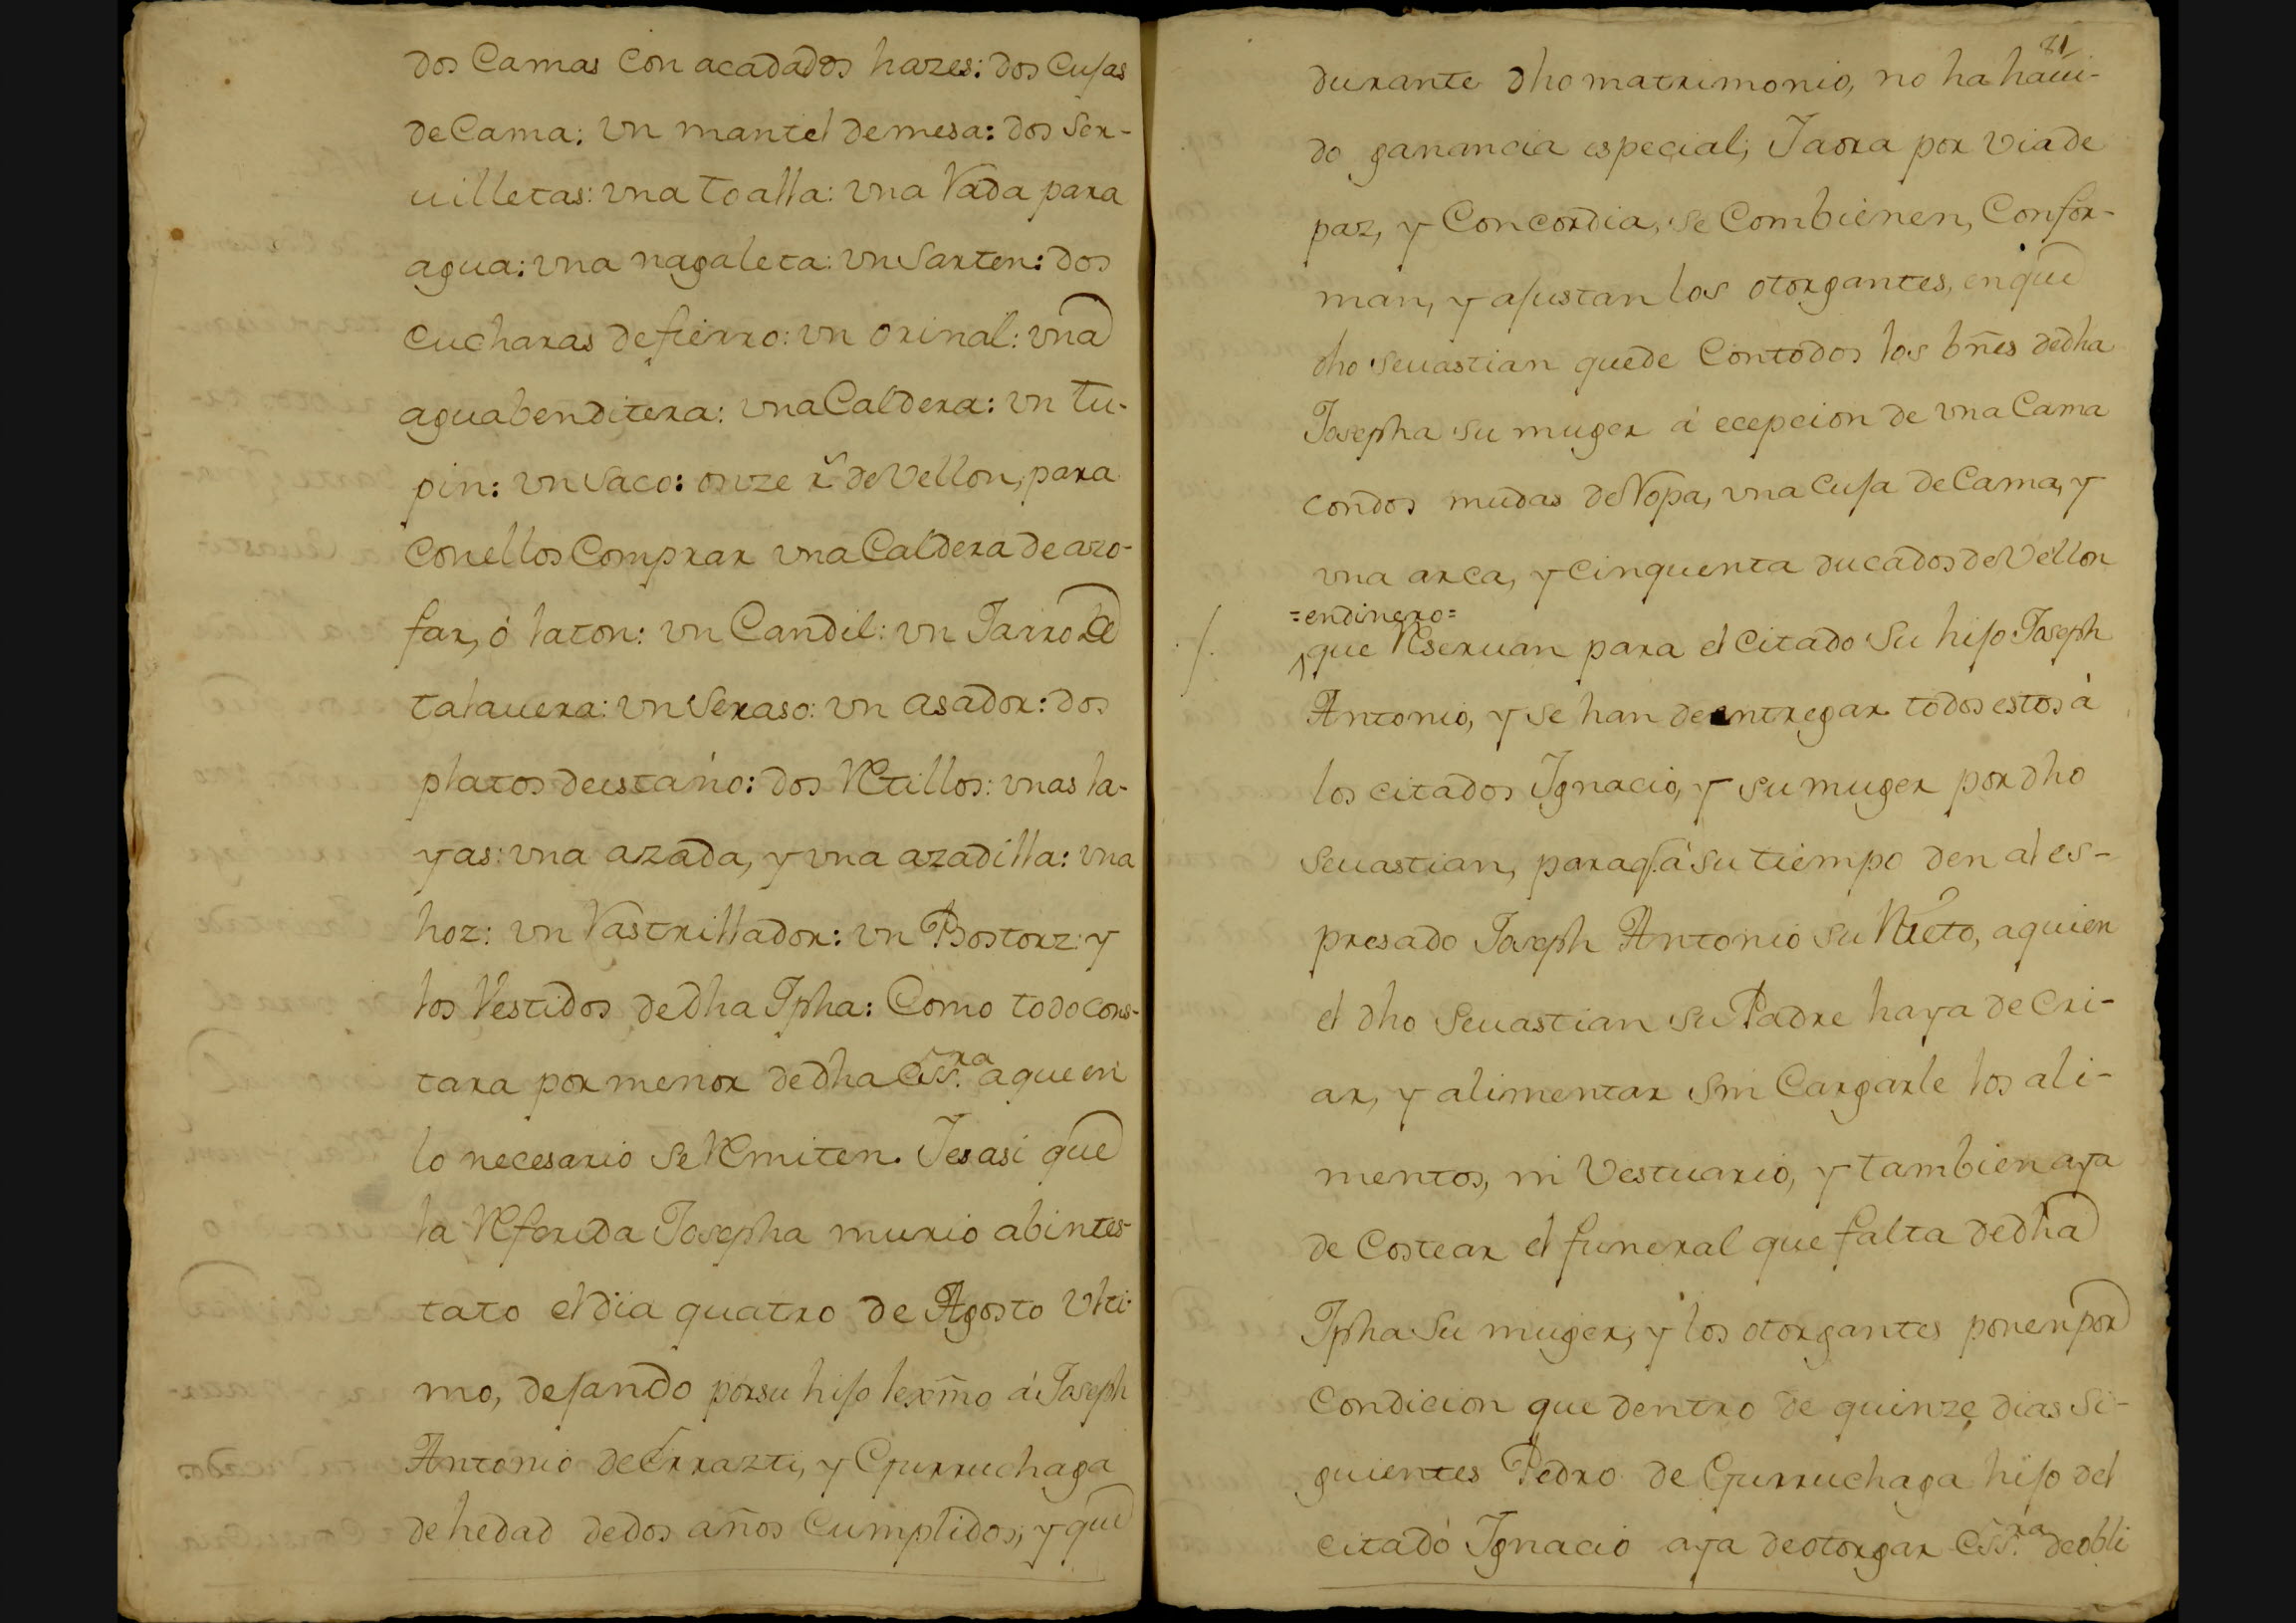 dos Camas con acadados hazes: dos Cujas
de Cama: vn mantel de mesa: dos Ser-
uilletas: vna toalla: vna Rada para
agua: vna nagaleta: vn Sarten: dos
cucharas de fierro: vn orinal: vna
aguabenditera: vna Caldera: vn tu-
pin: vn saco: onze rs de Vellon, para
con ellos Comprar vna Caldera de azo-
far, ó laton: vn Candil: vn Jarro de
talauera: vn Seraso: vn asador: dos
platos de estaño: dos Retillos: vnas la-
yas: vna azada, y vna azadilla: vna
hoz: vn Rastrillador: vn Bostorz: y
los Vestidos de dha Jpha: Como todo cons-
tara por menor de dha Essra. a que en
lo necesario se Remiten. Jes asi que
la Referida Josepha murio abintes-
tato el dia quatro de Agosto Vlti-
mo, dejando por su hijo lexmo á Joseph
Antonio de Errazti, y Gurruchaga
de hedad de dos años Cumplidos; y que
81
durante dho matrimonio, no ha haui-
do ganancia especial; Jaora por via de
paz, y Concordia, se Combienen, Confor-
man, y ajustan los otorgantes, en que
dho Seuastian quede Con todos los bñes de dha
Josepha su muger á ecepcion de vna Cama
con dos mudas de Ropa, vna Cuja de Cama, y
vna arca, y cinquenta ducados de Vellon
=en dinero=
que Reseruan para el citado Su hijo Joseph
Antonio, y se han de entregar todos estos á
los citados Ignacio, y su muger por dho
Seuastian, para q. á su tiempo den al es-
presado Joseph Antonio su Nieto, a quien
el dho Seuastian su Padre haya de Cri-
ar, y alimentar sin Cargarle los ali-
mentos, ni Vestuario, y tambien aya
de Costear el funeral que falta de dha
Jpha Su muger; y los otorgantes ponen por
Condicion que dentro de quinze dias Si-
guientes Pedro de Gurruchaga hijo del
citado Ignacio aya de otorgar Essra. de obli